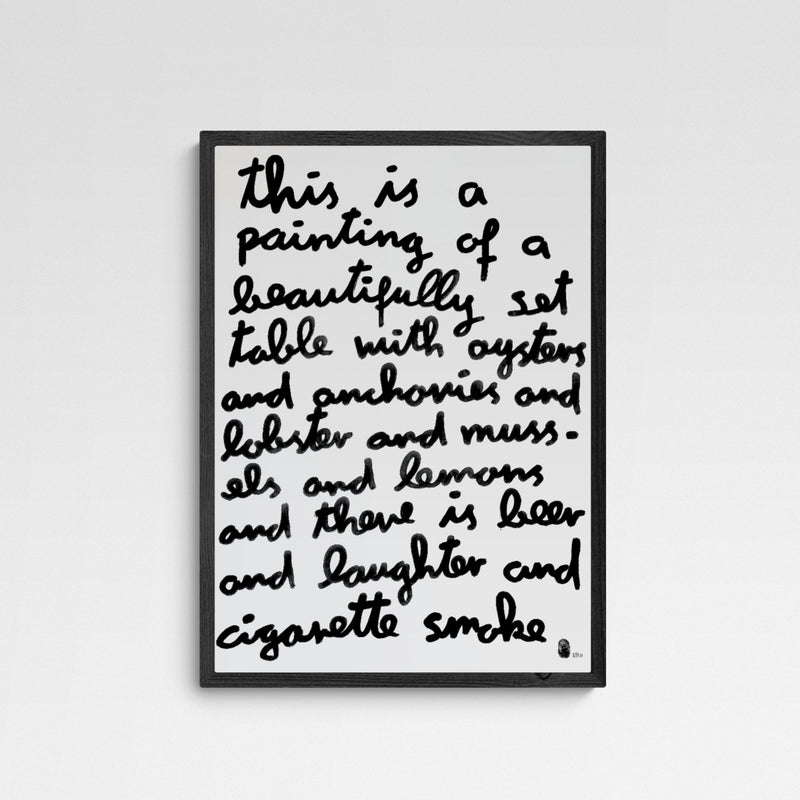 this is a
painting of a
beautifully set
table with oysters
and anchovies and
lobster and muss-
els and lemons
and there is beer
and laughter and
cigarette smoke